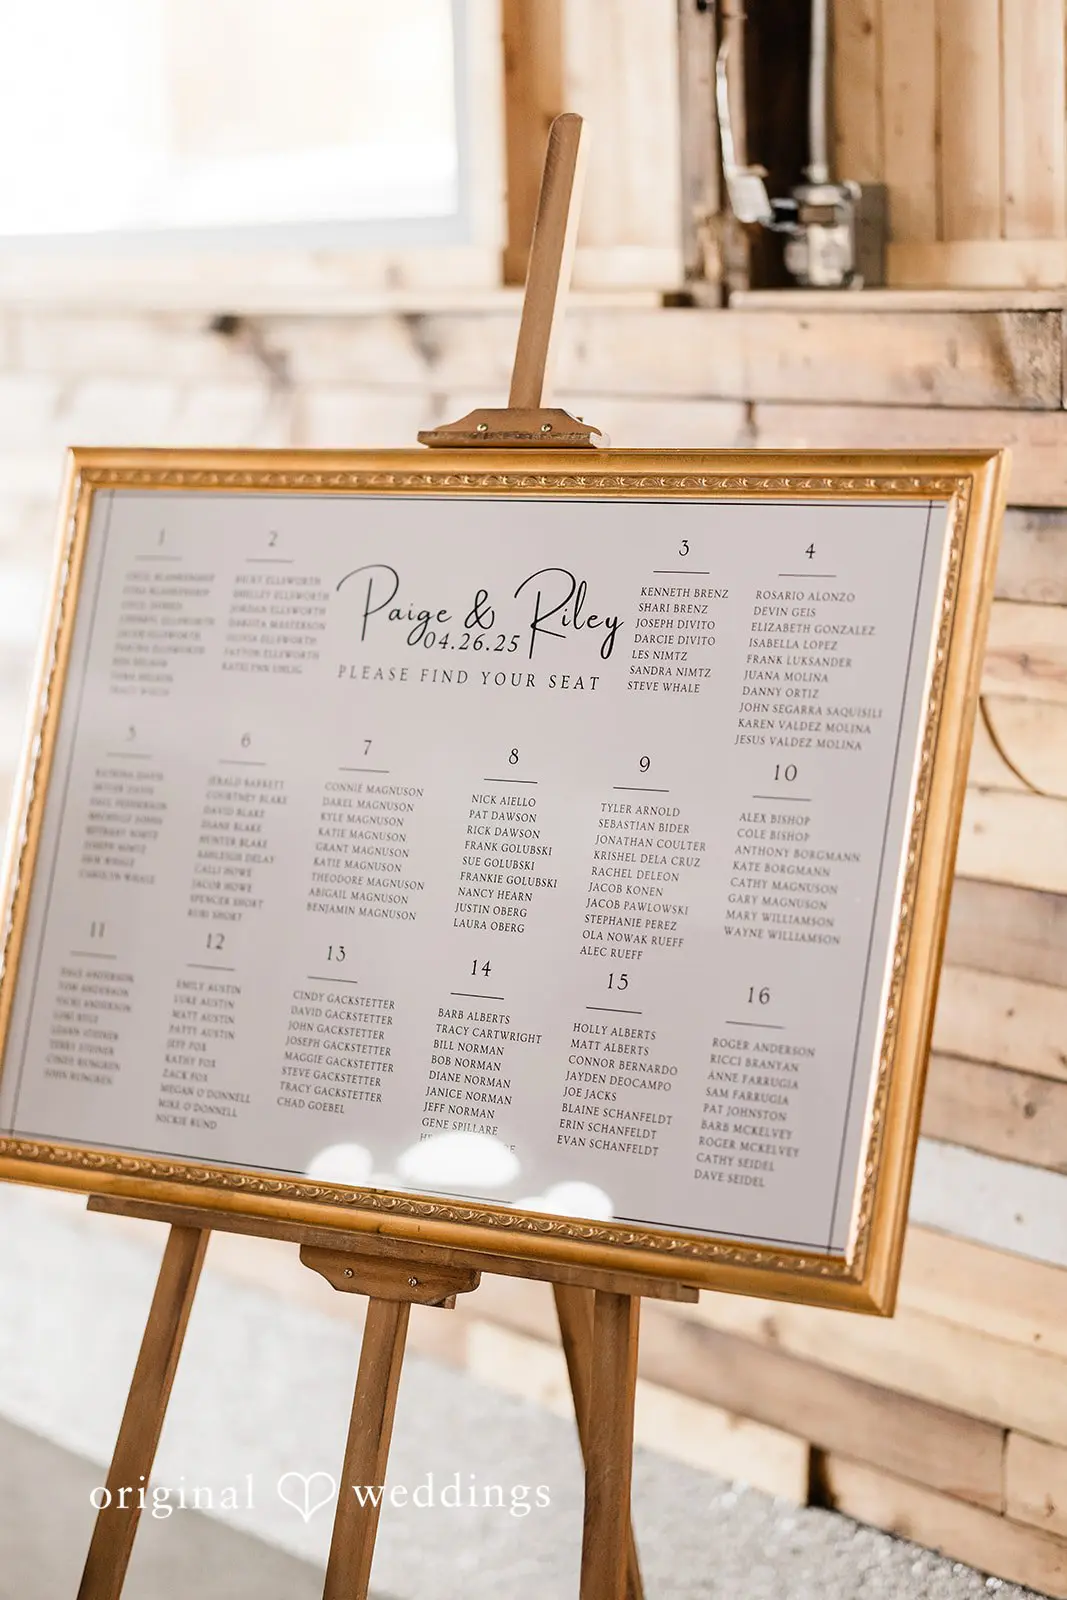 1
2
RICKY ELLSWORTH
SHELLEY ELLSWORTH
JORDAN ELLSWORTH
DAKOTA MASTERSON
OLIVIA ELLSWORTH
PAYTON ELLSWORTH
Paige & Riley
04.26.25
PLEASE FIND YOUR SEAT
3
KENNETH BRENZ
SHARI BRENZ
JOSEPH DIVITO
DARCIE DIVITO
LES NIMTZ
SANDRA NIMTZ
STEVE WHALE
4
ROSARIO ALONZO
DEVIN GEIS
ELIZABETH GONZALEZ
ISABELLA LOPEZ
FRANK LUKSANDER
JUANA MOLINA
DANNY ORTIZ
JOHN SEGARRA SAQUISILI
KAREN VALDEZ MOLINA
JESUS VALDEZ MOLINA
5
KATRINA DAVIS
BETHANY NIMTZ
JOSEPH NIMTZ
ERIK WHALE
CAROLYN WHALE
6
JERALD BARRETT
COURTNEY BLAKE
DAVID BLAKE
DIANE BLAKE
HUNTER BLAKE
ASHLEIGH DELAY
CALLI HOWE
JACOB HOWE
SPENCER SHORT
KORI SHORT
7
CONNIE MAGNUSON
DAREL MAGNUSON
KYLE MAGNUSON
KATIE MAGNUSON
GRANT MAGNUSON
KATIE MAGNUSON
THEODORE MAGNUSON
ABIGAIL MAGNUSON
BENJAMIN MAGNUSON
8
NICK AIELLO
PAT DAWSON
RICK DAWSON
FRANK GOLUBSKI
SUE GOLUBSKI
FRANKIE GOLUBSKI
NANCY HEARN
JUSTIN OBERG
LAURA OBERG
9
TYLER ARNOLD
SEBASTIAN BIDER
JONATHAN COULTER
KRISHEL DELA CRUZ
RACHEL DELEON
JACOB KONEN
JACOB PAWLOWSKI
STEPHANIE PEREZ
OLA NOWAK RUEFF
ALEC RUEFF
10
ALEX BISHOP
COLE BISHOP
ANTHONY BORGMANN
KATE BORGMANN
CATHY MAGNUSON
GARY MAGNUSON
MARY WILLIAMSON
WAYNE WILLIAMSON
11
TOM ANDERSON
VICKI ANDERSON
LORI KULE
LEANN STEINER
TERRY STEINER
CINDY RUNGREN
JOHN RUNGREN
12
EMILY AUSTIN
LUKE AUSTIN
MATT AUSTIN
PATTY AUSTIN
JEFF FOX
KATHY FOX
ZACK FOX
MEGAN O'DONNELL
MIKE O'DONNELL
NICKIE RUND
13
CINDY GACKSTETTER
DAVID GACKSTETTER
JOHN GACKSTETTER
JOSEPH GACKSTETTER
MAGGIE GACKSTETTER
STEVE GACKSTETTER
TRACY GACKSTETTER
CHAD GOEBEL
14
BARB ALBERTS
TRACY CARTWRIGHT
BILL NORMAN
BOB NORMAN
DIANE NORMAN
JANICE NORMAN
JEFF NORMAN
GENE SPILLARE
15
HOLLY ALBERTS
MATT ALBERTS
CONNOR BERNARDO
JAYDEN DEOCAMPO
JOE JACKS
BLAINE SCHANFELDT
ERIN SCHANFELDT
EVAN SCHANFELDT
16
ROGER ANDERSON
RICCI BRANYAN
ANNE FARRUGIA
SAM FARRUGIA
PAT JOHNSTON
BARB MCKELVEY
ROGER MCKELVEY
CATHY SEIDEL
DAVE SEIDEL
original weddings